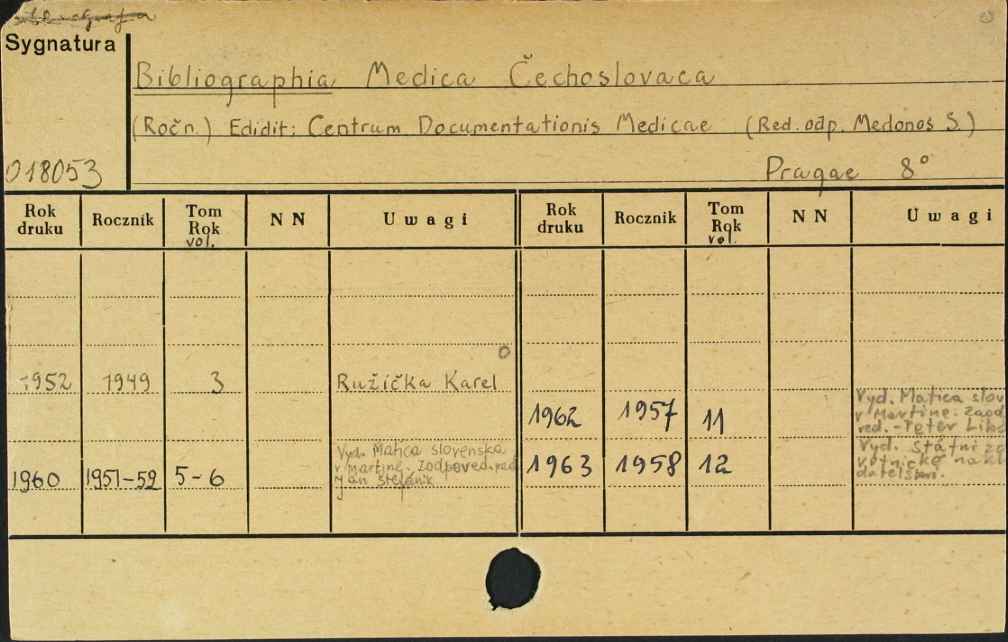 Sygnatura
Bibliographia Medica Čechoslovaca
(Ročn.) Edidit: Centrum Documentationis Medicae (Red. odp. Medonos S.)
018053
Pragae 8°
Rok druku Rocznik Tom Rok vol. NN Uwagi Rok druku Rocznik Tom Rok vol. NN Uwagi
1952 1949 3 Ružička Karel
1962 1957 11 Vyd. Matica slov
v Martine. Zaod
red. - Peter Lib
1960 1951-52 5-6 Vyd. Matica slovenska
v Martine. Zodpoved. red
Ján Štefánik
1963 1958 12 Vyd. Státní